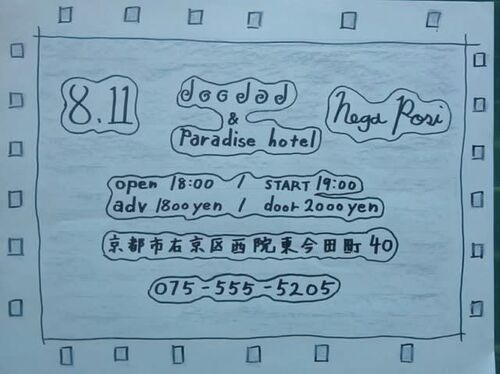 8.11
doodad
&
Paradise hotel
Nega Posi
open 18:00 / START 19:00
adv 1800 yen / door 2000 yen
京都市右京区西院東今田町 40
075-555-5205